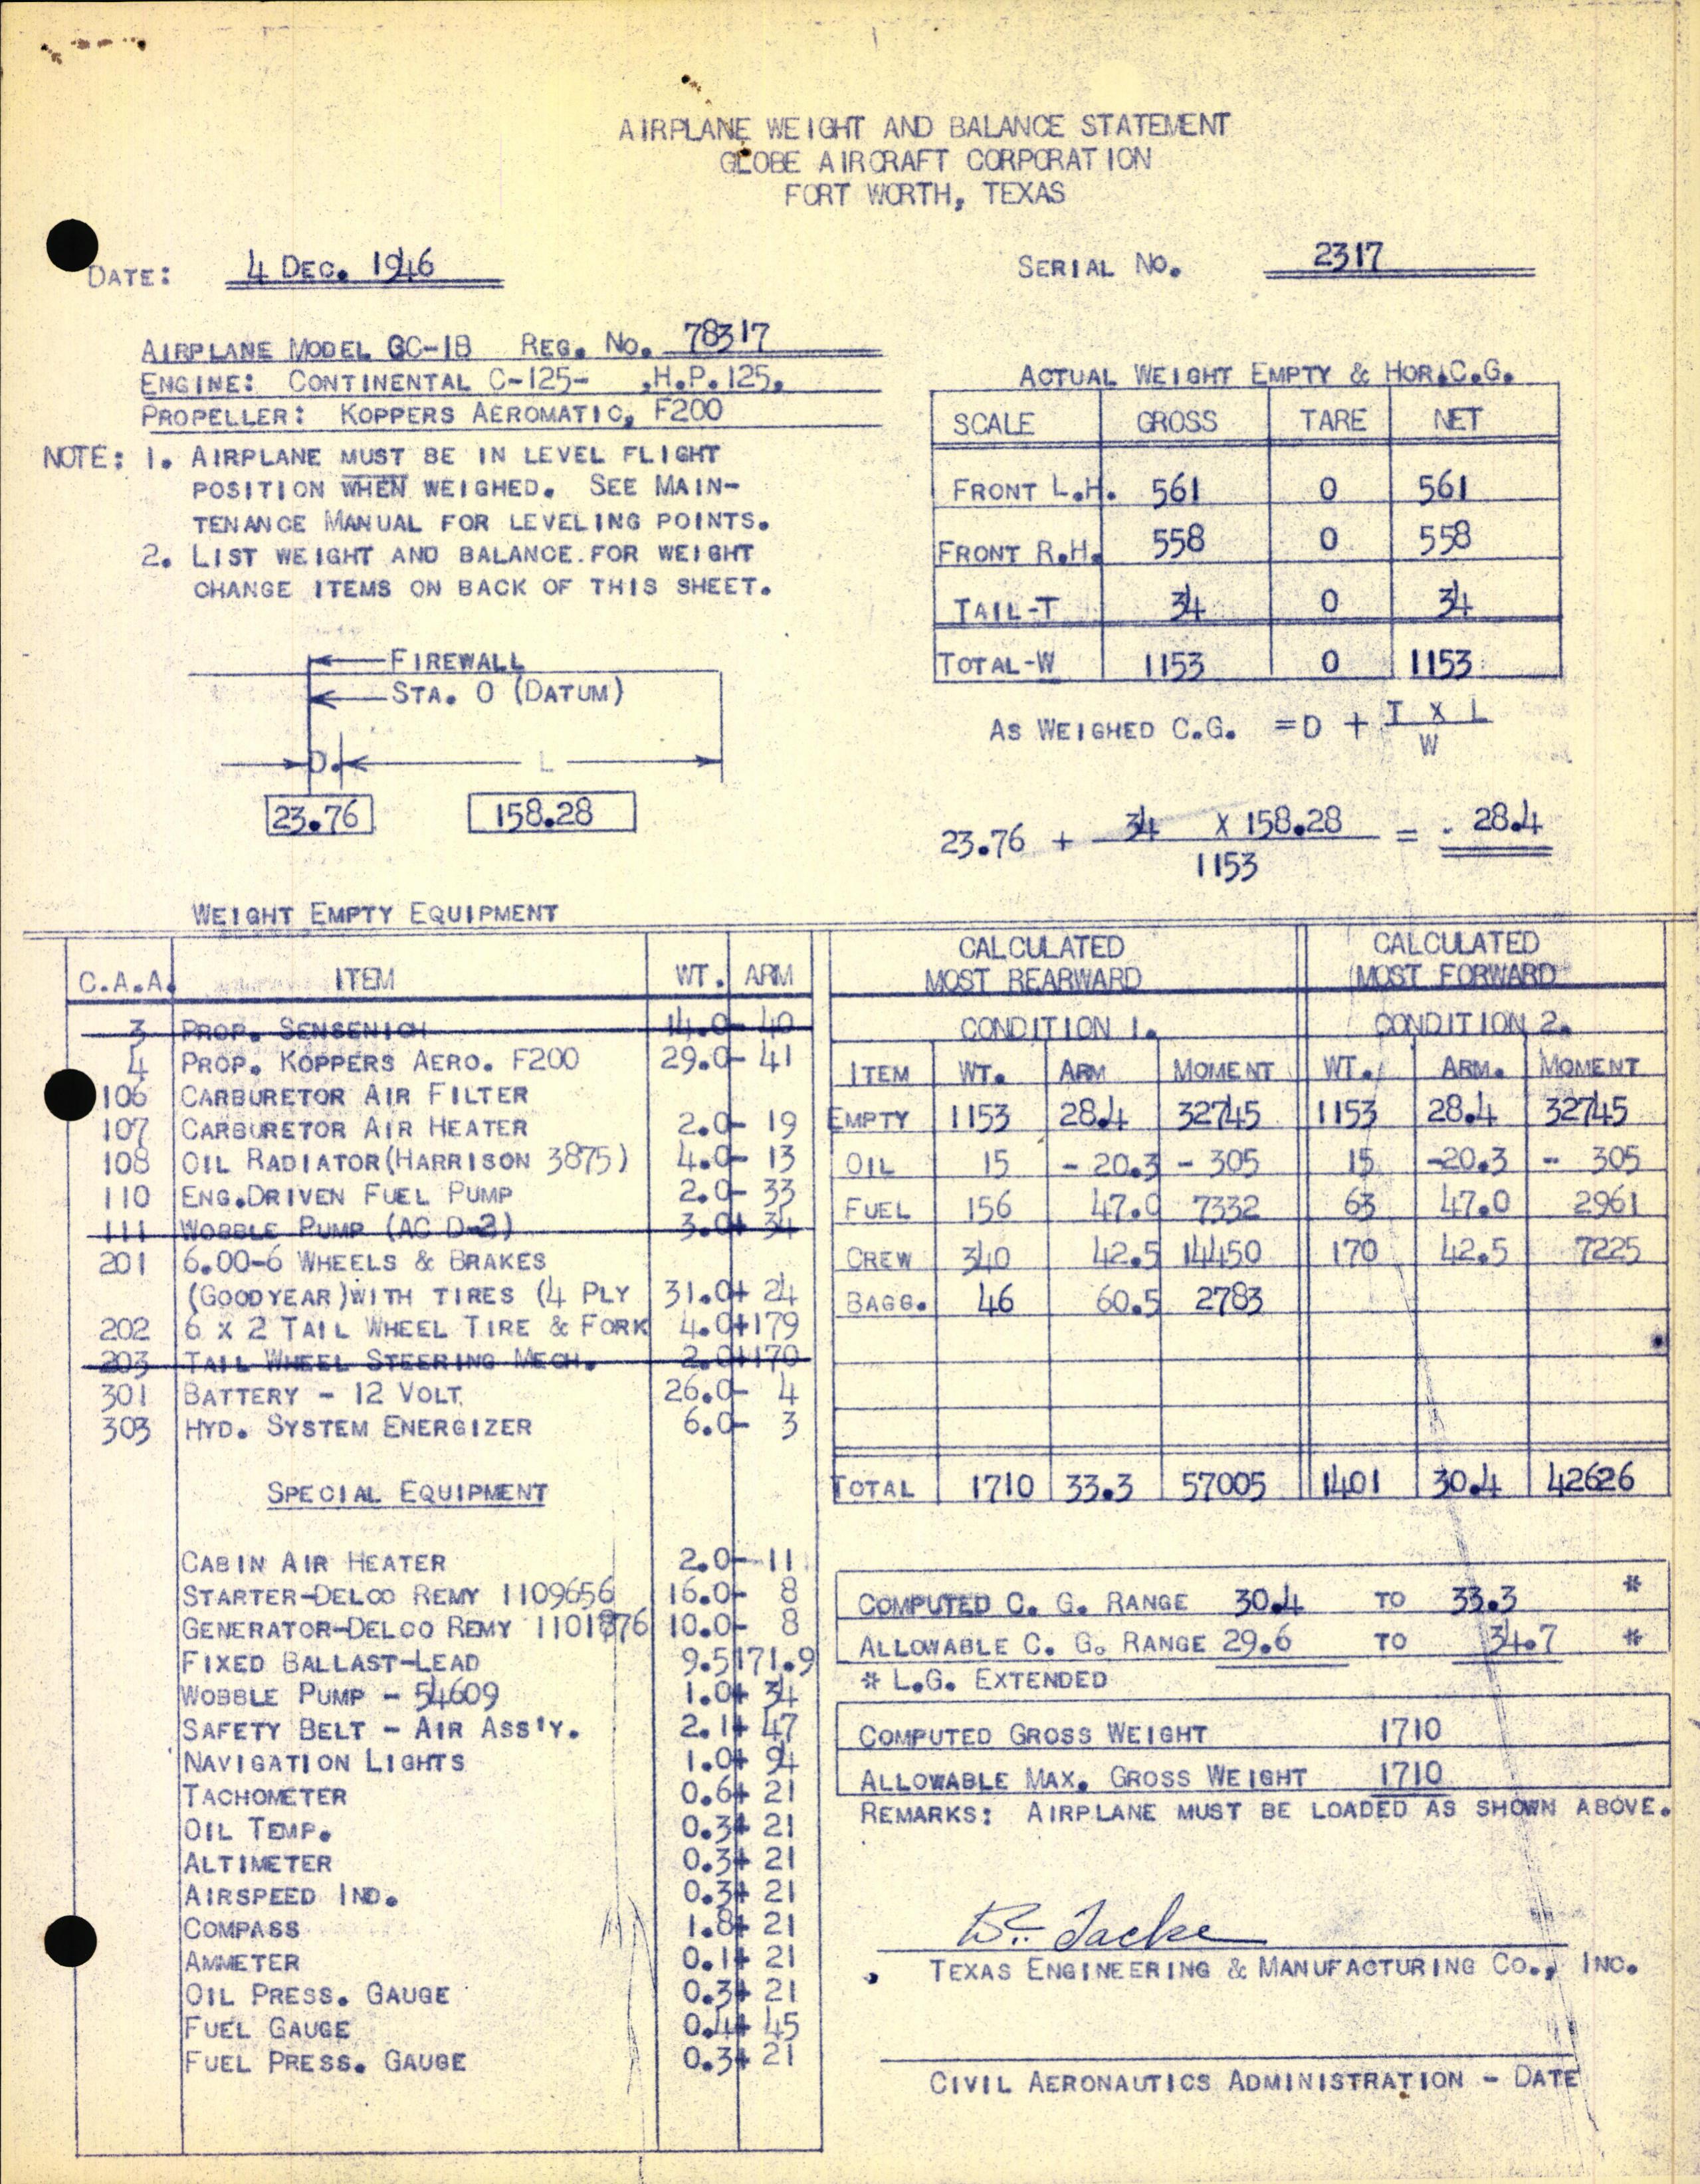 AIRPLANE WEIGHT AND BALANCE STATEMENT
GLOBE AIRCRAFT CORPORATION
FORT WORTH, TEXAS
DATE: 4 DEC. 1946
SERIAL NO. 2317
AIRPLANE MODEL GC-1B REG. NO. 78317
ENGINE: CONTINENTAL C-125- ,H.P.125,
PROPELLER: KOPPERS AEROMATIC, F200
NOTE: 1. AIRPLANE MUST BE IN LEVEL FLIGHT
POSITION WHEN WEIGHED. SEE MAIN-
TENANCE MANUAL FOR LEVELING POINTS.
2. LIST WEIGHT AND BALANCE.FOR WEIGHT
CHANGE ITEMS ON BACK OF THIS SHEET.
ACTUAL WEIGHT EMPTY & HOR.C.G.
SCALE GROSS TARE NET
FRONT L.H. 561 0 561
FRONT R.H. 558 0 558
TAIL-T 34 0 34
TOTAL-W 1153 0 1153
FIREWALL
STA. 0 (DATUM)
D. L
23.76 158.28
AS WEIGHED C.G. = D + T X L
W
23.76 + 34 X 158.28 = 28.4
1153
WEIGHT EMPTY EQUIPMENT
C.A.A. ITEM WT. ARM
3 PROP. SENSENICH 14.0- 40
4 PROP. KOPPERS AERO. F200 29.0- 41
106 CARBURETOR AIR FILTER
107 CARBURETOR AIR HEATER 2.0- 19
108 OIL RADIATOR(HARRISON 3875) 4.0- 13
110 ENG.DRIVEN FUEL PUMP 2.0- 33
111 WOBBLE PUMP (AC D-2) 3.0+ 34
201 6.00-6 WHEELS & BRAKES
(GOODYEAR)WITH TIRES (4 PLY 31.0+ 24
202 6 X 2 TAIL WHEEL TIRE & FORK 4.0+179
203 TAIL WHEEL STEERING MECH. 2.0+170
301 BATTERY - 12 VOLT 26.0- 4
303 HYD. SYSTEM ENERGIZER 6.0- 3
SPECIAL EQUIPMENT
CABIN AIR HEATER 2.0- 11
STARTER-DELCO REMY 1109656 16.0- 8
GENERATOR-DELCO REMY 1101876 10.0- 8
FIXED BALLAST-LEAD 9.5 171.9
WOBBLE PUMP - 54609 1.0+ 34
SAFETY BELT - AIR ASS'Y. 2.1+ 47
NAVIGATION LIGHTS 1.0+ 94
TACHOMETER 0.6+ 21
OIL TEMP. 0.3+ 21
ALTIMETER 0.3+ 21
AIRSPEED IND. 0.3+ 21
COMPASS 1.8+ 21
AMMETER 0.1+ 21
OIL PRESS. GAUGE 0.3+ 21
FUEL GAUGE 0.4+ 45
FUEL PRESS. GAUGE 0.3+ 21
CALCULATED CALCULATED
MOST REARWARD MOST FORWARD
CONDITION 1. CONDITION 2.
ITEM WT. ARM MOMENT WT. ARM. MOMENT
EMPTY 1153 28.4 32745 1153 28.4 32745
OIL 15 - 20.3 - 305 15 -20.3 - 305
FUEL 156 47.0 7332 63 47.0 2961
CREW 340 42.5 14450 170 42.5 7225
BAGG. 46 60.5 2783
TOTAL 1710 33.3 57005 1401 30.4 42626
COMPUTED C. G. RANGE 30.4 TO 33.3 *
ALLOWABLE C. G. RANGE 29.6 TO 34.7 *
* L.G. EXTENDED
COMPUTED GROSS WEIGHT 1710
ALLOWABLE MAX. GROSS WEIGHT 1710
REMARKS: AIRPLANE MUST BE LOADED AS SHOWN ABOVE.
TEXAS ENGINEERING & MANUFACTURING CO., INC.
CIVIL AERONAUTICS ADMINISTRATION - DATE